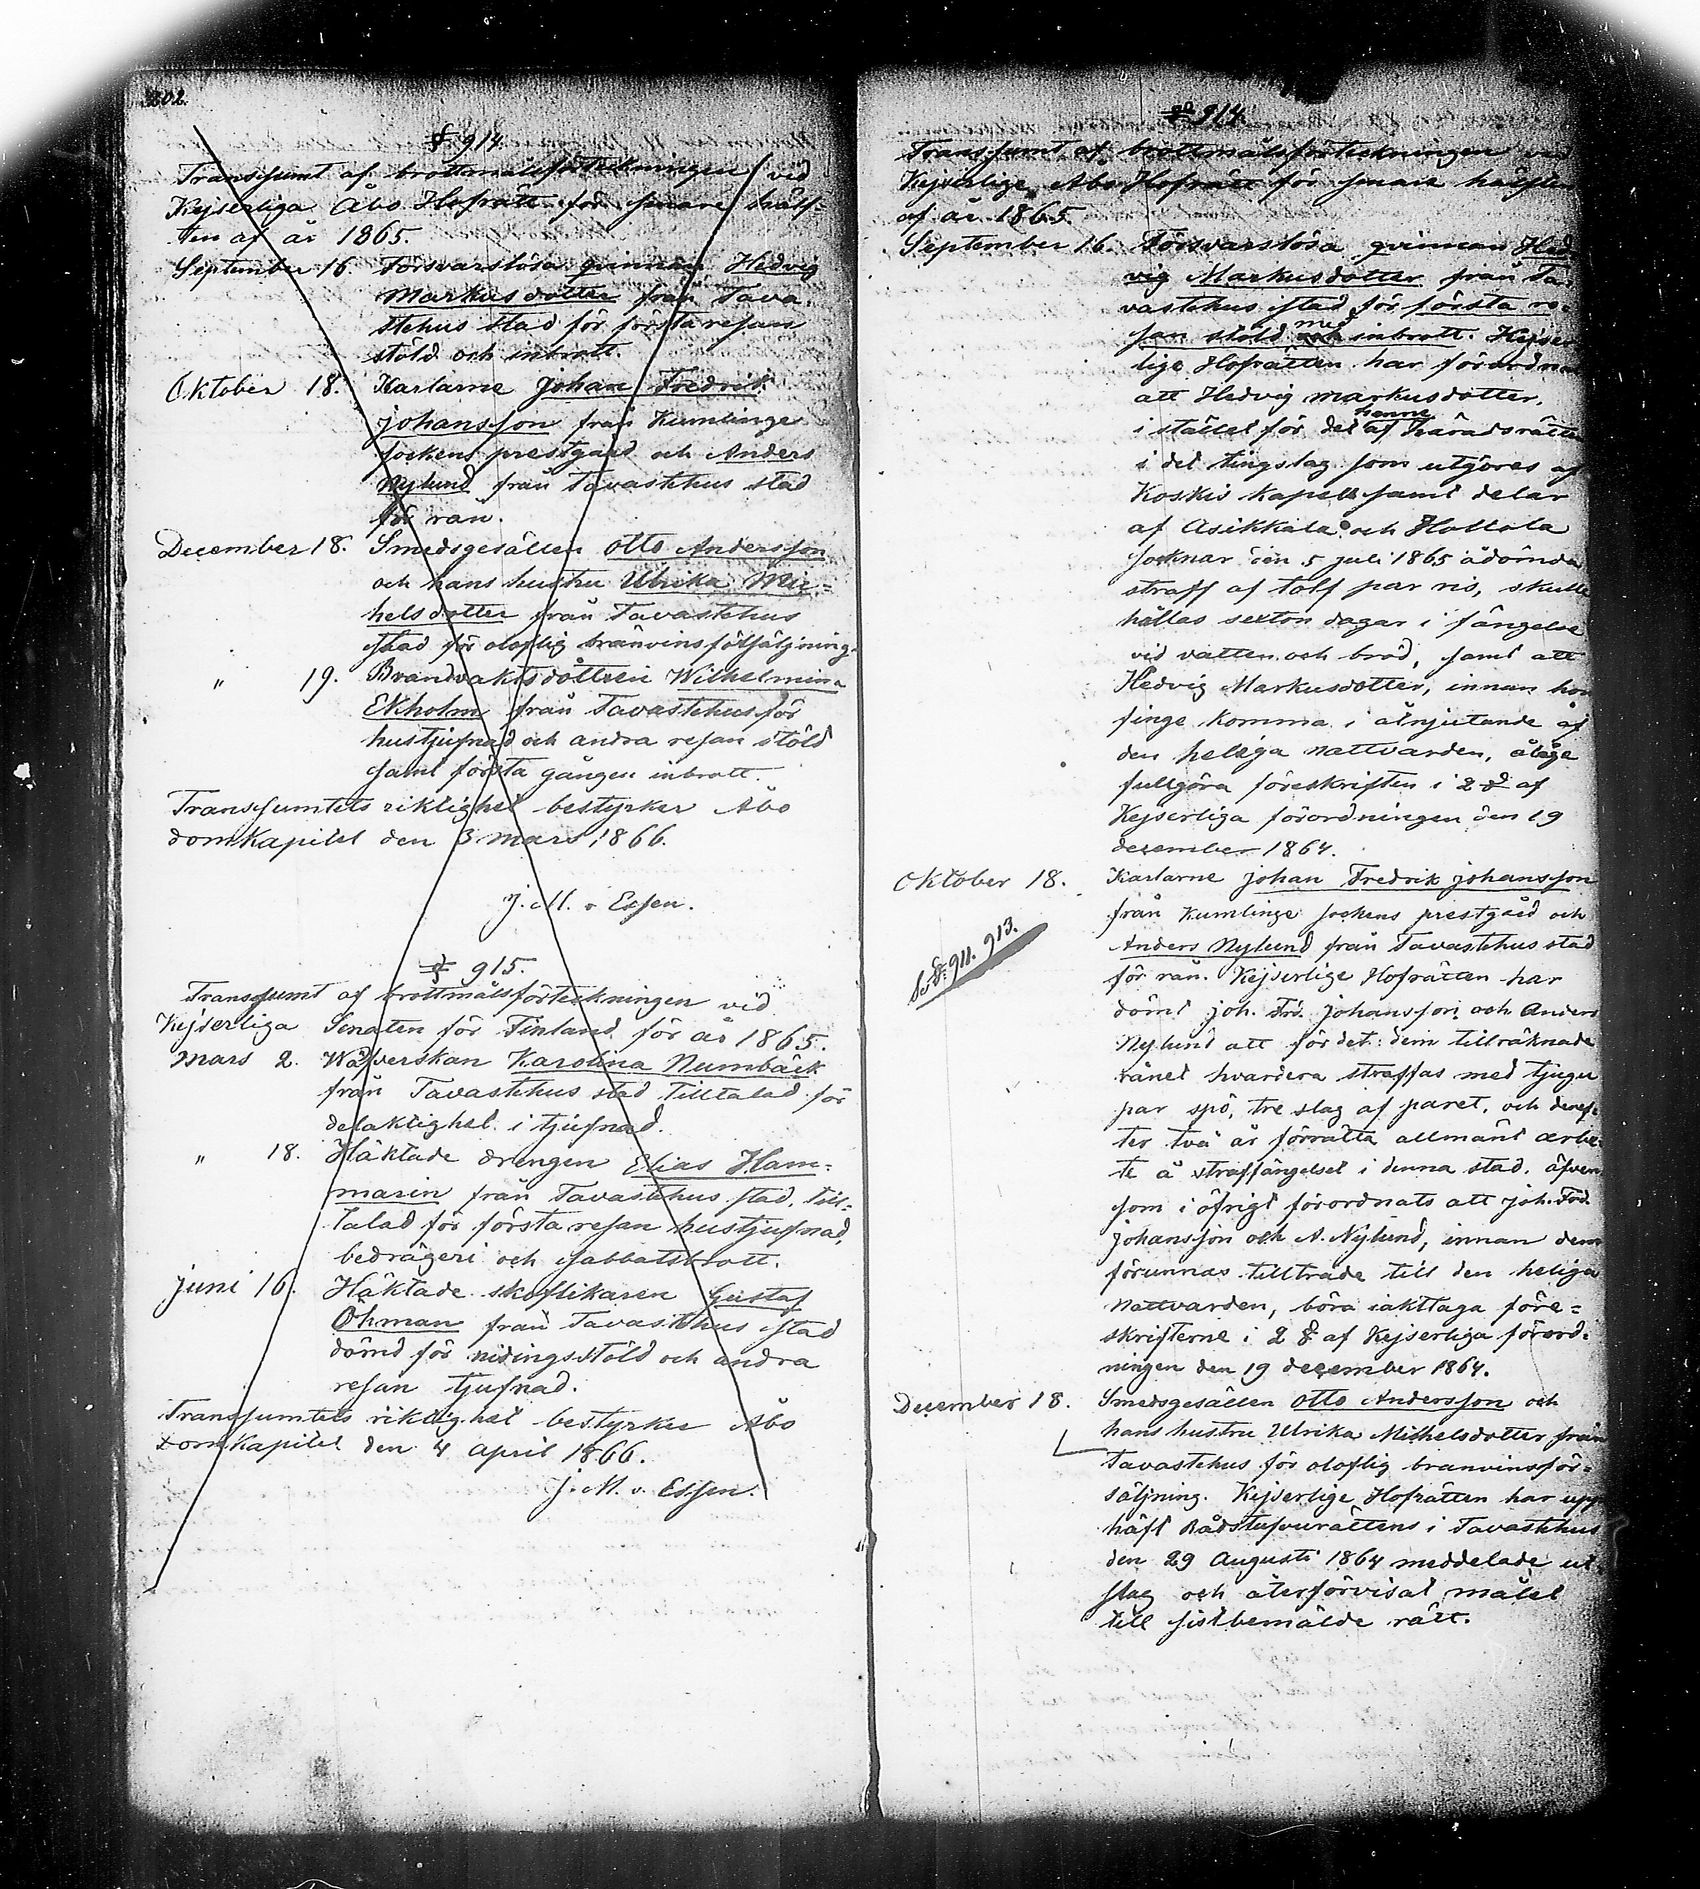 202.
§ 914.
Transsumt af brottmålsförteckningen vid
Kejserliga Åbo Hofrätt för senare hälf-
ten af år 1865.
September 16. Försvarslösa qvinnan Hedvig
Markusdotter från Tava-
stehus stad för första resan
stöld och inbrott.
Oktober 18. Karlarne Johan Fredrik
Johansson från Kumlinge
sockens prestgård och Anders
Nylund från Tavastehus stad
för rån.
December 18. Smedsgesällen Otto Andersson
och hans hustru Ulrika Mic-
helsdotter från Tavastehus
stad för oloflig bränvinsförsäljning.
" 19. Brandvaktsdottren Wilhelmina
Ekholm från Tavastehus för
hustjufnad och andra resan stöld
samt första gången inbrott.
Transsumtets riktighet bestyrker Åbo
domkapitel den 3 mars 1866.
J. M. v Essen.
§ 915.
Transsumt af brottmålsförteckningen vid
Kejserliga Senaten för Finland för år 1865.
Mars 2. Wäfverskan Karolina Numbäck
från Tavastehus stad tilltalad för
delaktighet i tjufnad.
" 18. Häktade drengen Elias Ham-
marin från Tavastehus stad, till-
talad för första resan hustjufnad,
bedrägeri och sabbatsbrott.
Juni 16. Häktade skoflikaren Gustaf
Öhman från Tavastehus stad
dömd för nidingsstöld och andra
resan tjufnad.
Transsumtets riktighet bestyrker Åbo
Domkapitel den 4 april 1866.
J. M. v. Essen.
§ 914.
Transsumt af brottmålsförteckningen vid
Kejserliga Åbo Hofrätt för senare hälften
af år 1865.
September 16. Försvarslösa qvinnan Hed-
vig Markusdotter från Ta-
vastehus stad för första re-
san stöld och med inbrott. Kejser-
lige Hofrätten har förordnat
att Hedvig Markusdotter,
i stället för det henne af häradsrätten
i det tingslag som utgöres af
Koskis kapell samt delar
af Asikkala och Hollola
socknar den 5 juli 1865 ådömda
straff af tolf par ris, skulle
hållas sexton dagar i fängelse
vid vatten och bröd, samt att
Hedvig Markusdotter, innan hon
finge komma i åtnjutande af
den heliga nattvarden, ålåge
fullgöra föreskriften i 2 § af
Kejserliga förordningen den 19
december 1864.
Oktober 18. Karlarne Johan Fredrik Johansson
från Kumlinge sockens prestgård och
Anders Nylund från Tavastehus stad
för rån. Kejserlige Hofrätten har
dömt Joh. Frd. Johansson och Anders
Nylund att för det dem tillräknade
rånet hvardera straffas med tjugu
par spö, tre slag af paret, och deref-
ter två år förrätta allmänt arbe-
te å straffängelset i denna stad, äfven-
som i öfrigt förordnats att Joh. Frd.
Johansson och A. Nylund, innan dem
förunnas tillträde till den heliga
nattvarden, böra iakttaga före-
skrifterne i 2 § af Kejserliga förord-
ningen den 19 december 1864.
S. §. 911. 913.
December 18. Smedsgesällen Otto Andersson och
hans hustru Ulrika Michelsdotter från
Tavastehus för oloflig bränvinsför-
säljning. Kejserlige Hofrätten har upp-
häft Rådstufvurättens i Tavastehus
den 29 Augusti 1864 meddelade ut-
slag och återförvisat målet
till sistbemälde rätt.